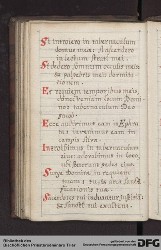 Si introiero in tabernaculum
domus meae: si ascendero
in lectum strati mei
Si dedero somnum oculis meis
et palpebris meis dormita
tionem
Et requiem temporibus meis,
donec inveniam locum Domi
no: tabernaculum Deo
Ecce audivimus eam in Ephra
ta: invenimus eam in
campis
Introibimus in tabernaculum
eius: adorabimus in loco,
ubi steterunt pedes eius
Surge Domine in requiem
tuam: tu et arca sancti
ficationis tuae
Sacerdotes tui induantur iustitiam
et sancti tui exultent
Bibliothek des
Bischöflichen Priesterseminars Trier
DFG